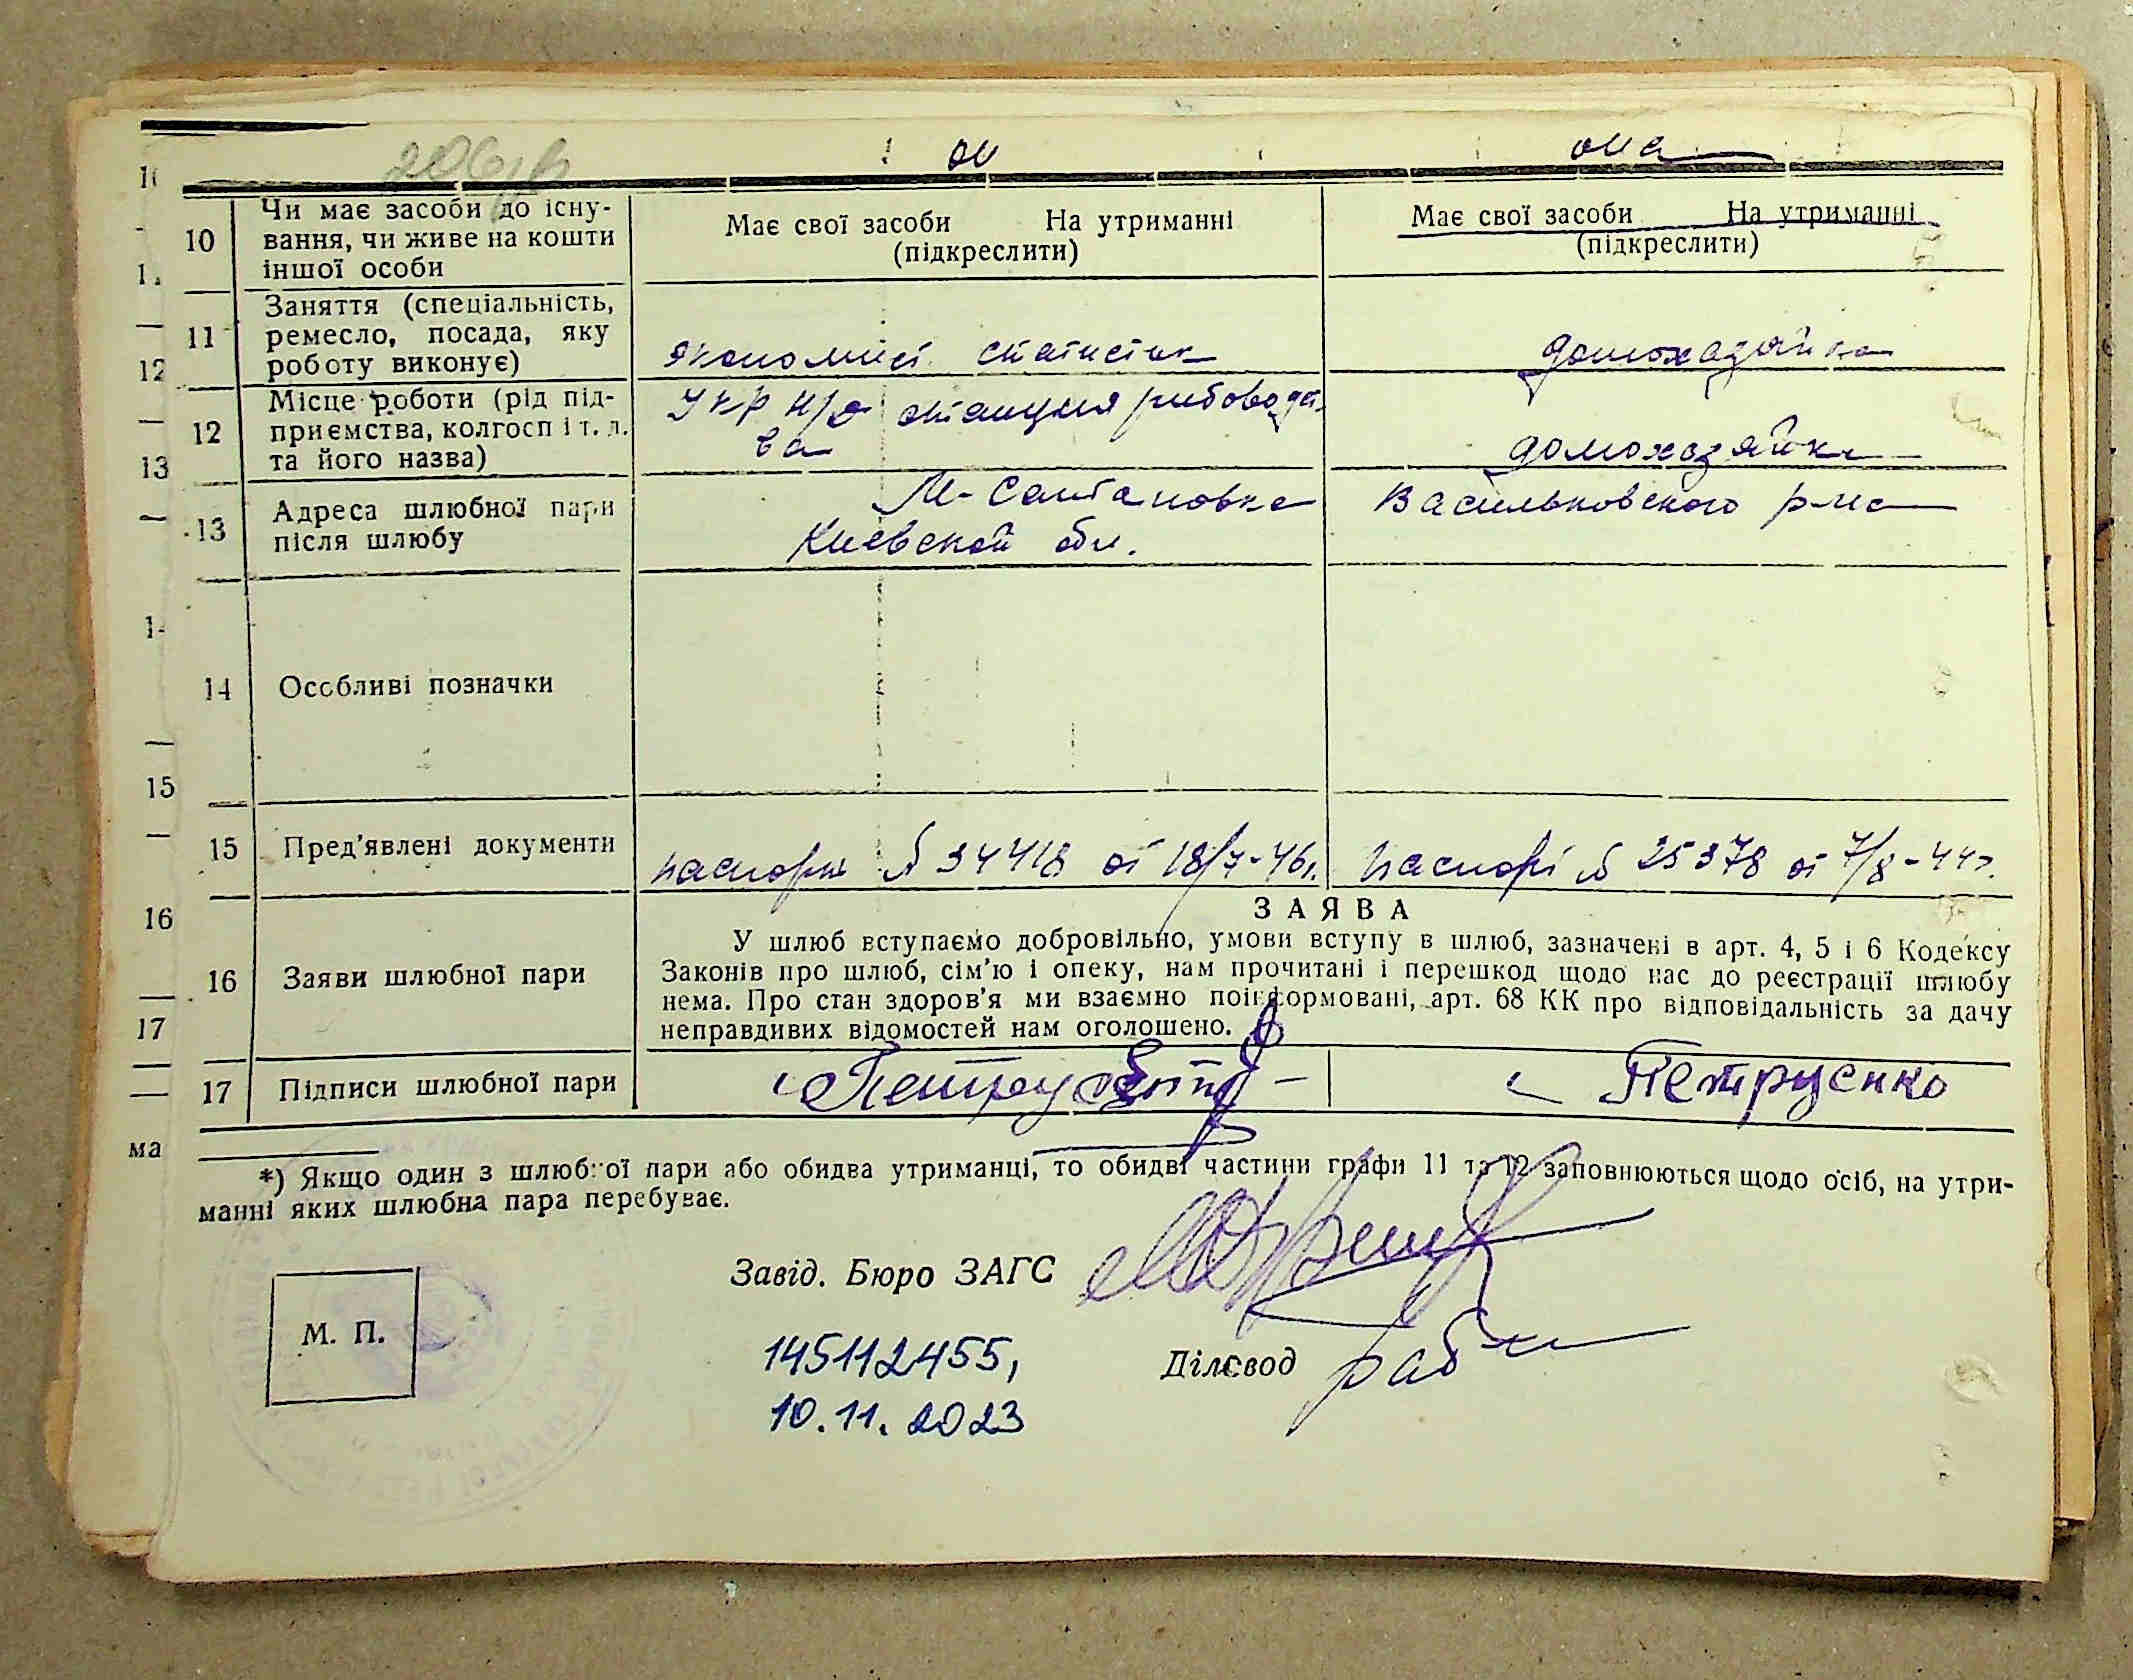 206/в
он она
10 Чи має засоби до існу-
вання, чи живе на кошти
іншої особи
Має свої засоби На утриманні
(підкреслити)
Має свої засоби На утриманні
(підкреслити)
11 Заняття (спеціальність,
ремесло, посада, яку
роботу виконує)
экономист статистик
домохазяйка
12 Місце роботи (рід під-
приємства, колгосп і т. п.
та його назва)
Укр н/о станция рибоводст-
ва
домохазяйка
13 Адреса шлюбної пари
після шлюбу
М- Салтановка Васильковского р-на
Киевской обл.
14 Особливі позначки
15 Пред'явлені документи
паспорт № 34418 от 18/7-46г.
паспорт № 25378 от 7/8-44г.
16 Заяви шлюбної пари
ЗАЯВА
У шлюб вступаємо добровільно, умови вступу в шлюб, зазначені в арт. 4, 5 і 6 Кодексу
Законів про шлюб, сім'ю і опеку, нам прочитані і перешкод щодо нас до реєстрації шлюбу
нема. Про стан здоров'я ми взаємно поінформовані, арт. 68 КК про відповідальність за дачу
неправдивих відомостей нам оголошено.
17 Підписи шлюбної пари
Петрусенко
*) Якщо один з шлюбної пари або обидва утриманці, то обидві частини графи 11 та 12 заповнюються щодо осіб, на утри-
манні яких шлюбна пара перебуває.
Завід. Бюро ЗАГС
М. П.
145112455,
Діловод
10.11.2023
12
13
15
16
17
ма